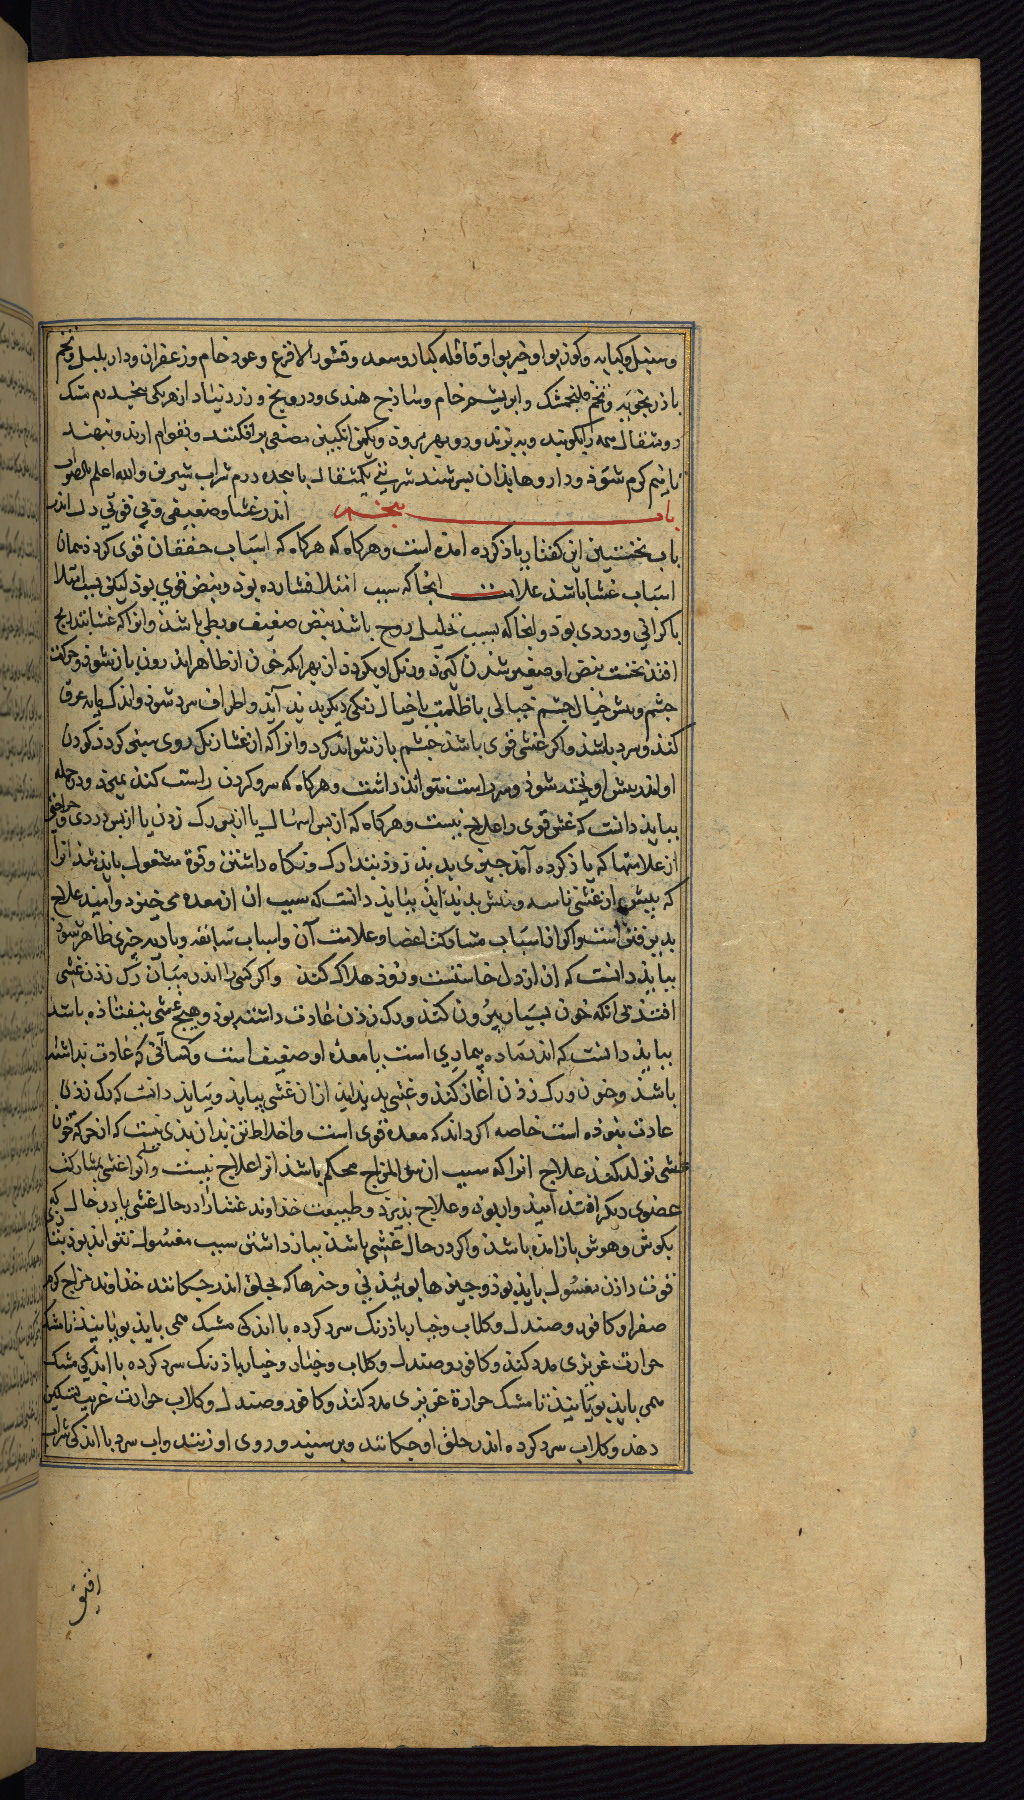 و سنبل و کبابه و کوز بوا و خیر بوا و قاقله کبار و سعد و قشور الاترج و عود خام و زعفران و دار بلبل و تخم
باذرنجبویه و تخم فلنجمشک و ابریشم خام و ساذج هندی و درونج و زرنباد از هر یکی پنج درم مشک
دو مثقال همه را بکوبند و به پزند و بکمتر انکبین مصفی برافکنند و بقوام ارند و بنهند
تا نیم کرم شوذ و داروها بذان بسرشند شربتی یکمثقال با پنجده درم شراب شیرین والله اعلم بالصواب
باب پنجم اندر غشا و ضعیفی و بی قوتی دل اندر
باب نخستین این کفتار یاذ کرده امده است و هرکاه که هرکاه که اسباب خفقان قوی کردذ همان
اسباب غشا باشذ علامت انجا که سبب امتلا فشارده بوذ و نبض قوی بوذ لیکن بسبب امتلا
با کرانی و دردی بوذ و انجا که بسبب تحلیل روح باشذ نبض ضعیف و بطی باشذ و انرا که غشا بتدریج
افتذ نخست نبض او صغیر شدن کیرذ و رنک او بکردذ از بهر انکه خون از ظاهر اندرون باز شوذ و حرکت
چشم و پیش خیال چشم خیالی با ظلمت یا خیال رنکی دیکر پدید آیذ و اطراف سرد شوذ و اندک مایه عرق
کنذ و سرد باشذ و اکر غشی قوی باشذ چشم باز نتوانذ کرد و انرا که از غشا رنک روی سبز کردذ کردن
او اندر پیش اویخته شوذ و سر راست نتوانذ داشت و هرکاه که سر و کردن راست کند بمیرذ و در جمله
ببایذ دانست که غشی قوی را علاج نیست و هرکاه که از پس اسهال یا از پس رک زدن یا از پس دردی و جراحتی
از علامتها که یاذ کرده آمذ چیزی پدید زوذ بتدارک و نکاه داشتن و قوة مشغول بایذ شذ انرا
که پیش از غشی تاسه و منش پدید ایذ ببایذ دانست که سبب ان از معده می خیزذ و امیذ علاج
پدیرفتن است و اکر از اسباب مشارکت اعضا و علامت آن و اسباب سابقه و باذیه چیزی ظاهر شوذ
ببایذ دانست که ان از دل خاستست و زوذ هلاک کنذ و اکر کسی را اندر میان رک زدن غشی
افتذ بی انکه خون بسیار بیرون کنذ و رک زدن عادت داشته بوذ و هیچ غشی بنیفتاذه باشذ
ببایذ دانست که اندر ماده بیماری است یا معده او ضعیف است و کسانی که عادت نداشته
باشذ و خون و رک زدن اغاز کنذ و غشی پدید ایذ از ان غشی ببایذ و ببایذ دانست که رک زدن
عادت نبوذه است خاصه اکر داند که معده قوی است و اخلاط تن بدان بذی نیست که از حرکت خون
غشی تولد کند علاج انرا که سبب ان سوء المزاج محکم باشذ انرا علاج نیست و انرا غشی بمشارکت
عضوی دیکر افتذ امیذ وار بوذ و علاج بذیرذ و طبیعت خذاوند غشا را در حال غشی یا در حال که
بکوش و هوش باز امذه باشذ و اکر در حال غشی باشذ بباز داشتن سبب مغسول نتوانذ بوذ
قوت داذن مغسول بایذ بوذ و چیزها بوئیذنی و خرها که بحلق اندر چکانند خذاوند مزاج کرم
صفرا و کافور و صندل و کلاب و خیار باذرنک سرد کرده با اندکی مشک همی بایذ بویانیذ تا مشک
حرارت غریزی مدد کنذ و کافور و صندل و کلاب و خیار و خیار باذرنک سرد کرده با اندکی مشک
همی بایذ بویانیذ تا مشک حرارة غریزی مدد کنذ و کافور و صندل و کلاب حرارت غریب تسکین
دهذ و کلاب سرد کرده اندر حلق او چکانند و بر سینه و روی او زنند و اب سرد با اندکی شراب
رقیق